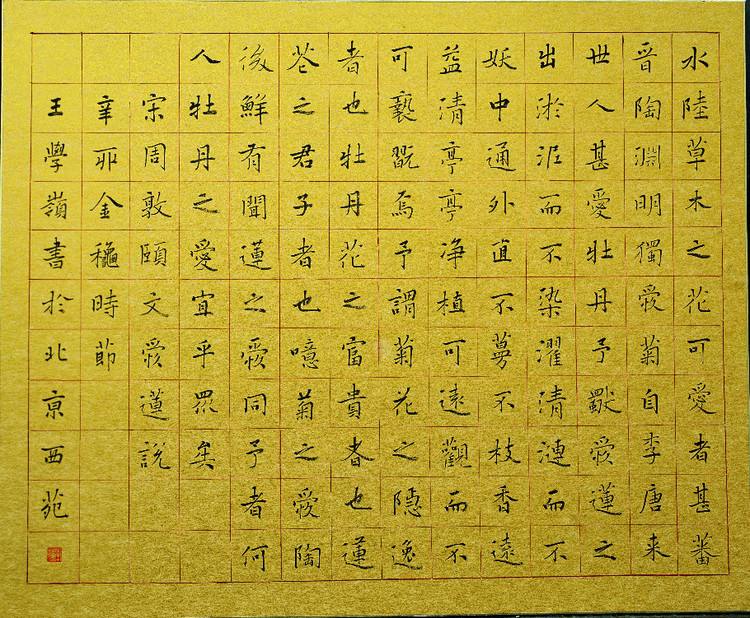 水陸草木之花可愛者甚蕃
晉陶淵明獨愛菊自李唐来
世人甚愛牡丹予愛蓮之
出淤泥而不染濯清漣而不
妖中通外直不蔓不枝香遠
益清亭亭净植可遠觀而不
可褻翫焉予謂菊花之隱逸
者也牡丹花之富貴者也蓮
花之君子者也噫菊之愛陶
後鮮有聞蓮之愛同予者何
人牡丹之愛宜乎眾矣
宋周敦頤文愛蓮說
辛卯金龝時節
王學嶺書於北京西苑